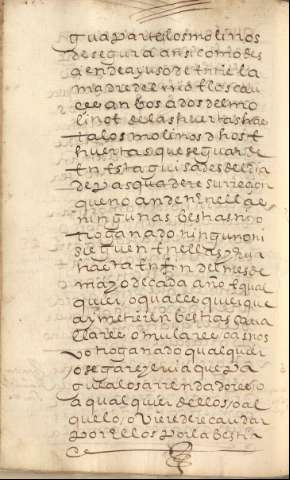 gua parte los molinos
de segura ansi como des
aende ayuso de entre la
madre del rrio e los cau
ces anbos a dos del mo
lino e de las huertas has
ta los molinos d hos e
huertas que se guarde
en esta guisa desde el dia
de pasqua de rresurreçion
que no anden en ella ee
ningunas bestias ni o
tro ganado ninguno ni
sieguen en ellas yerua
hasta en fin del mes de
mayo de cada año e qual
quier, o quales quier que
ay metieren bestias caua
llares o mulares o asnos
v otro ganado qualquier
o segare yerua que pa
gue a los arrendadores o
a qualquier dellos / o al
quelo / oviere de recaudar
por ellos por la bestia